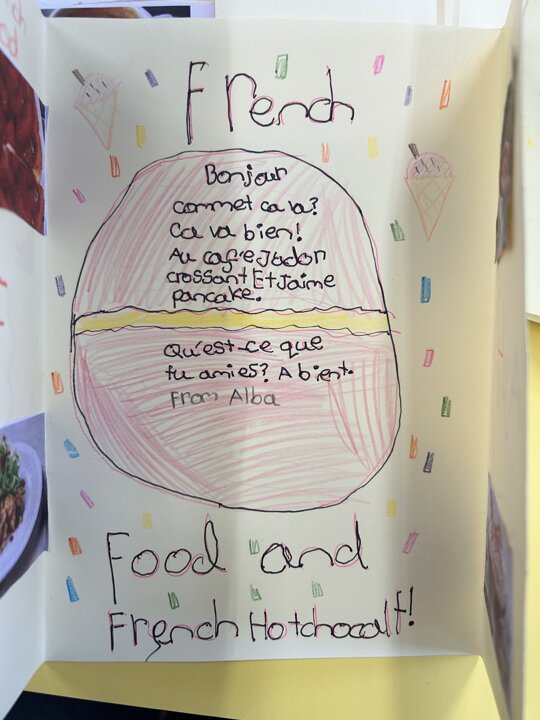 French
Bonjour
commet ca va?
Ca va bien!
Au cafe Jadon
crossant Et Jaime
pancake.
Qu'est-ce que
tu amies? A bient.
From Alba
Food and
French Hotchocalt!